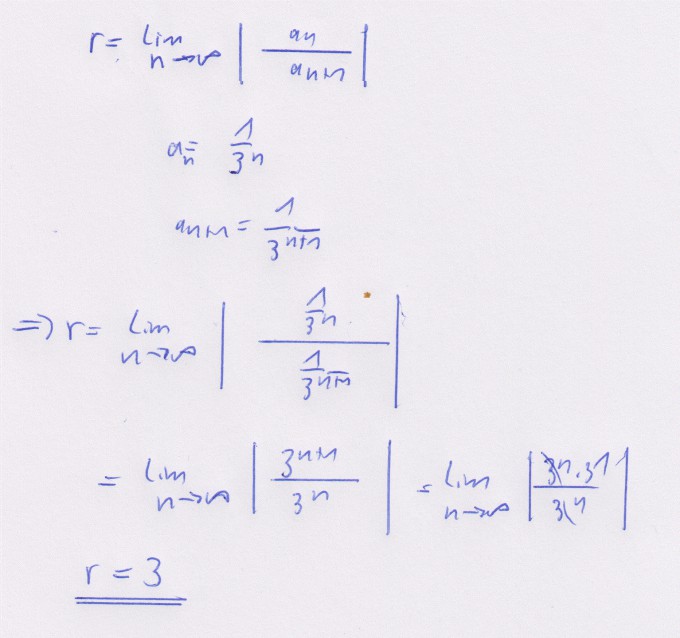 r = lim n→∞ | an / an+1 |
an = 1 / 3^n
an+1 = 1 / 3^n+1
=> r = lim n→∞ | 1/3^n / 1/3^n+1 |
= lim n→∞ | 3^n+1 / 3^n | = lim n→∞ | 3^n · 3^1 / 3^n |
r = 3